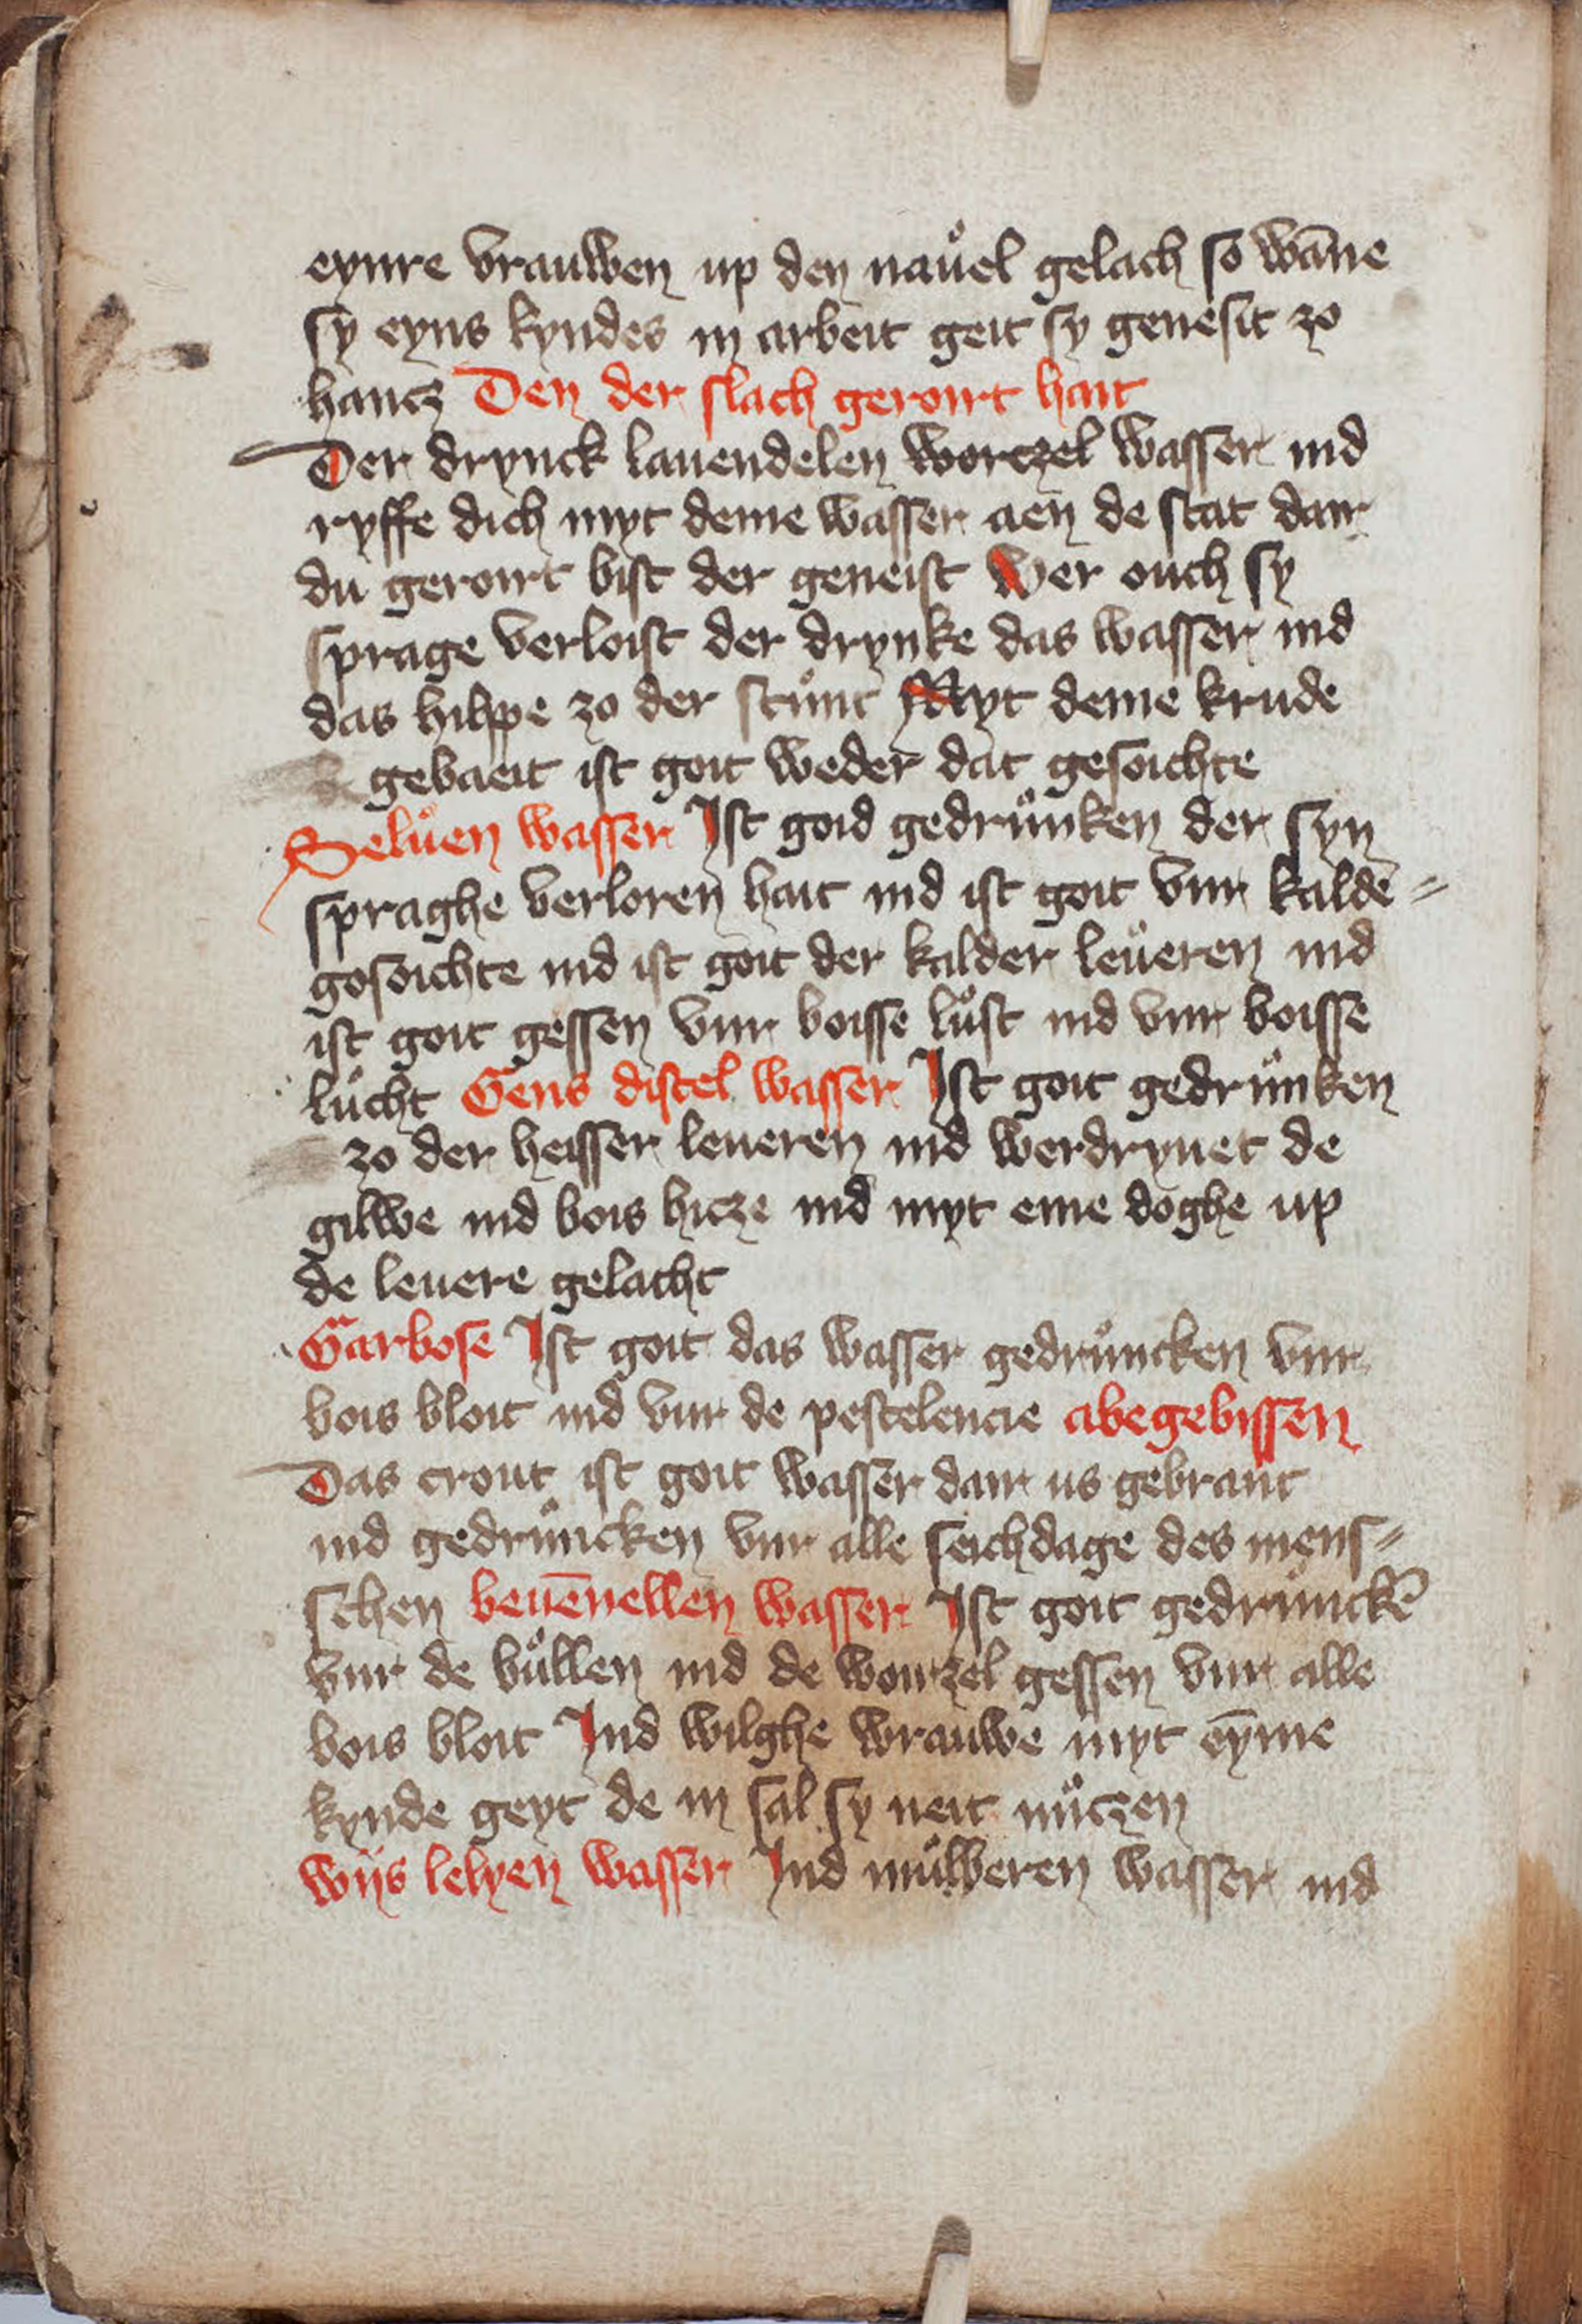 eynre vrauwen up den nauͦel gelach so wāne
sy eyns kyndes in arbeit geit sy genesit zo
hantz Den der slach geroirt hait
Der drynck lauendelen wortzel wasser ind
ryffe dich myt deme wasser aen de stat dair
du geroirt bist der geneist Wer ouch sy
sprage verloist der drynke das wasser ind
das hilpe zo der stuͦnt Myt deme krude
gebaeit ist goit weder dat gesoichte
Seluͦen wasser Ist goid gedruͦnken der syn
spraghe verloren hait ind ist goit vur kalde =
gosoichte ind ist goit der kalder leuͦeren ind
ist goit gessen vur boisse luͦst ind vur boisse
luͦcht Gens distel wasser Ist goit gedruͦnken
zo der heisser leueren ind werdryuet de
gilwe ind bois hitze ind myt eme doghe up
de leuere gelacht
Garbose Ist goit das wasser gedruͦncken vur
bois bloit ind vur de pestelencie abegebissen
Das crout ist goit wasser dair us gebrant
ind gedruͦncken vur alle seichdage des mens=
schen beuēnellen wasser Ist goit gedruͦnckē
vur de buͦllen ind de wourzel gessen vur alle
bois bloit Ind wilghe wrauwe myt eȳme
kynde geyt de in sal sy neit nuͦtzen
wijs lelyen wasser Ind muͦlberen wasser ind